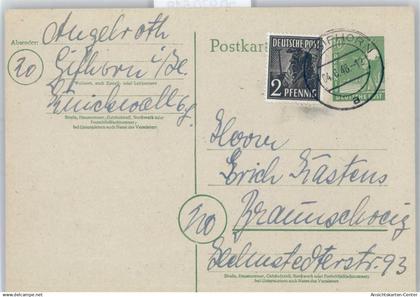 Absender:
Angelroth
20
Gifhorn i/
Wohnort, auch Zustell- oder Leitpostamt
Straße, Hausnummer, Gebäudeteil, Stockwerk oder Postschließfachnummer;
bei Untermietern auch Name des Vermieters
Postkarte
DEUTSCHE POST
2 PFENNIG
GIFHORN
a
DEUTSCHE POST
Herrn
Erich Kästens
20
Braunschweig
Helmstedterstr. 93
Straße, Hausnummer, Gebäudeteil, Stockwerk oder Postschließfachnummer;
bei Untermietern auch Name des Vermieters
Ansichtskarten-Center